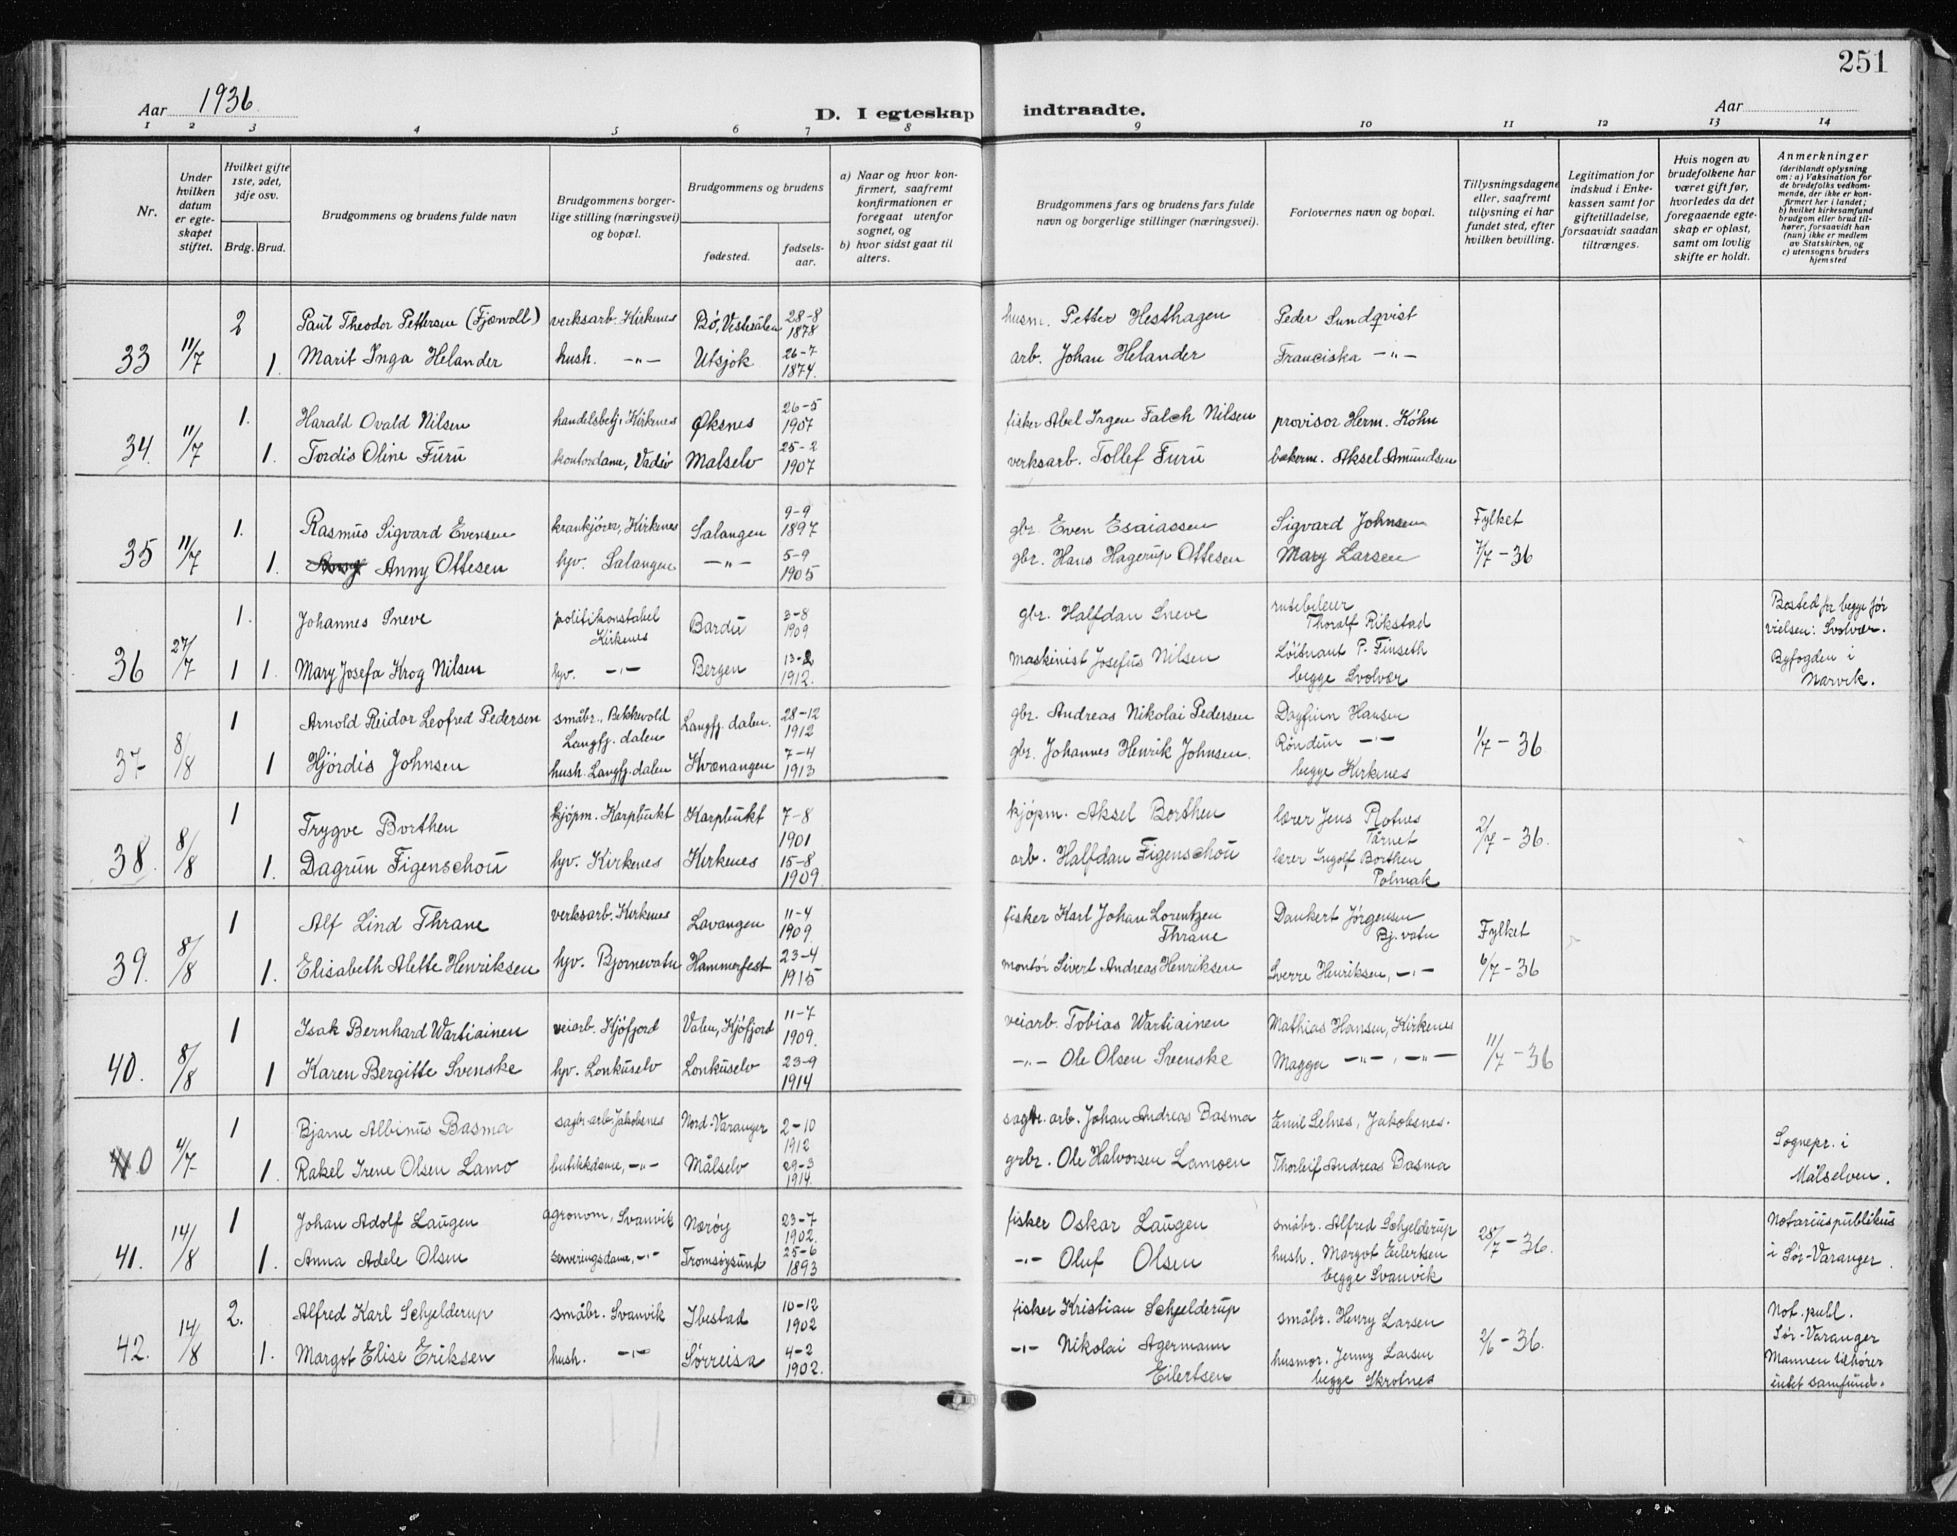 251
Aar 1936
D. I egteskap indtraadte.
Aar
1 2 3 4 5 6 7 8 9 10 11 12 13 14
Nr.
Under hvilken datum er egteskapet stiftet.
Hvilket gifte 1ste, 2det, 3dje osv.
Brdg. Brud.
Brudgommens og brudens fulde navn
Brudgommens borgerlige stilling (næringsvei) og bopæl.
Brudgommens og brudens
fødested.
fødselsaar.
a) Naar og hvor konfirmert, saafremt konfirmationen er foregaat utenfor sognet, og
b) hvor sidst gaat til alters.
Brudgommens fars og brudens fars fulde navn og borgerlige stillinger (næringsvei).
Forlovernes navn og bopæl.
Tillysningsdagene eller, saafremt tillysning ei har fundet sted, efter hvilken bevilling.
Legitimation for indskud i Enkekassen samt for giftetilladelse, forsaavidt saadan tiltrænges.
Hvis nogen av brudefolkene har været gift før, hvorledes da det foregaaende egteskap er opløst, samt om lovlig skifte er holdt.
Anmerkninger (deriblandt oplysning om: a) Vaksination for de brudefolks vedkommende, der ikke er konfirmert her i landet; b) hvilket kirkesamfund brudgom eller brud tilhører, forsaavidt han (hun) ikke er medlem av Statskirken, og c) utensogns bruders hjemsted
33 11/7 2 Paul Theodor Pettersen (Fjærvoll) verksarb. Kirkenes Bø, Vesterålen 28-8 1878 husm. Petter Hesthagen Peder Sundqvist
1. Marit Inga Helander hush. -"- Utsjok 26-7 1874. arb. Johan Helander Franciska -"-
34. 11/7 1. Harald Ovald Nilsen handelsbetj. Kirkenes Øksnes 26-5 1907 fisker Abel Irgen Falch Nilsen provisor Herm. Køhn
1. Tordis Oline Furu kontordame, Vadsø Malselv 25-2 1907 verksarb. Tollef Furu bakerm. Aksel Amundsen
35 11/7 1. Rasmus Sigvard Evensen krankjører, Kirkenes Salangen 9-9 1897 gbr. Even Esaiassen Sigvard Johnsen Fylket
1. Anny Ottesen hjv. Salangen -"- 5-9 1905 gbr. Hans Hagerup Ottesen Mary Larsen 7/7-36
36 27/7 1. Johannes Sneve politikonstabel Kirkenes Bardu 3-8 1909 gbr. Halfdan Sneve rutebileier Thoralf Rikstad Bosted for begge før vielsen: Svolvær.
1 1. Mary Josefa Krog Nilsen hjv. -"- Bergen 13-2 1912. maskinist Josefus Nilsen Løitnant P. Finseth begge Svolvær Byfogden i Narvik.
37 8/8 1 Arnold Reidar Leofred Pedersen småbr., Bekkevold Langfj. dalen Langfj. dalen. 28-12 1912 gbr. Andreas Nikolai Pedersen Dagfinn Hansen
1 Hjørdis Johnsen hush. Langfj. dalen Kvænangen 7-4 1913 gbr. Johannes Henrik Johnsen. Røndun -"- begge Kirkenes 1/7-36
38. 8/8 1 Trygve Borthen kjøpm. Karpbukt Karpbukt 7-8 1901 kjøpm. Aksel Borthen lærer Jens Rotnes Tårnet 2/7-36.
1. Dagrun Figenschou hjv. Kirkenes Kirkenes 15-8 1909. arb. Halfdan Figenschou lærer Ingolf Borthen Polmak
39. 8/8 1 Alf Lind Thrane verksarb. Kirkenes Lavangen 11-4 1909. fisker Karl Johan Lorentzen Thrane Dankert Jørgensen Bj. vatn Fylket
1. Elisabeth Alette Henriksen hjv. Bjørnevatn Hammerfest 23-4 1915 montør Sivert Andreas Henriksen Sverre Henriksen, -"- 6/7-36
40. 8/8 1 Isak Bernhard Wartiainen veiarb. Kjøfjord Valen, Kjøfjord 11-7 1909. veiarb. Tobias Wartiainen Mathias Hansen, Kirkenes
1 Karen Bergitte Svenske hjv. Lonkuselv Lonkuselv 23-9 1914 -"- Ole Olsen Svenske Magga -"-, -"- 11/7-36
0 4/7 1 Bjarne Albinus Basma sagbr-arb. Jakobsnes Nord-Varanger 2-10 1912 sagbr. arb. Johan Andreas Basma Emil Selnes, Jakobsnes.
1. Rakel Irene Olsen Lamo butikkdame, -"- Målselv 29-3 1914. grbr. Ole Halvorsen Lamoen Thorleif Andreas Basma Sognepr. i Målselven.
41. 14/8 1 Johan Adolf Laugen agronom, Svanvik Nærøy 23-7 1902. fisker Oskar Laugen småbr. Alfred Schjelderup 28/7-36. Notarius publikus
1. Anna Adele Olsen serveringsdame, -"- Tromsøysund 25-6 1893 -"- Oluf Olsen hush. Margot Eilertsen begge Svanvik i Sør-Varanger.
42. 14/8 2. Alfred Karl Schjelderup småbr. Svanvik Ibestad 10-12 1902 fisker Kristian Schjelderup småbr. Henry Larsen 2/6-36. Not. publ. Sør-Varanger
1. Margot Elise Eriksen hush. -"- Sørreisa 4-2 1902. -"- Nikolai Agermann Eilertsen husmor. Jenny Larsen begge Skrotnes Mannen tilhører intet samfund.